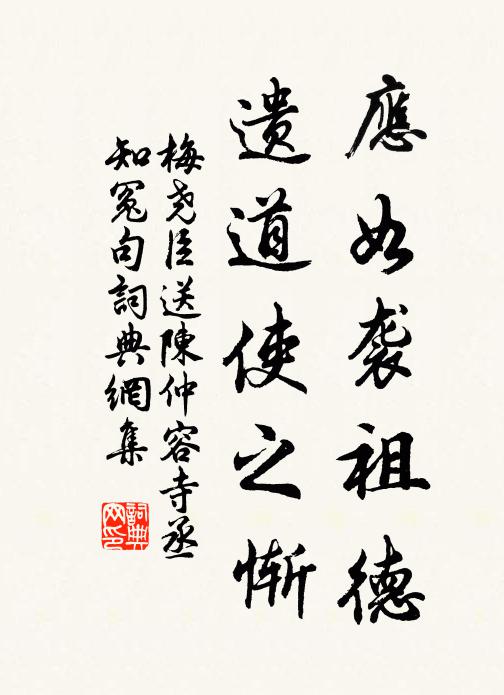 應如袭祖德
遗道使之慚
梅尧臣送陳仲容寺丞
知冤句詞典網集
詞典网印